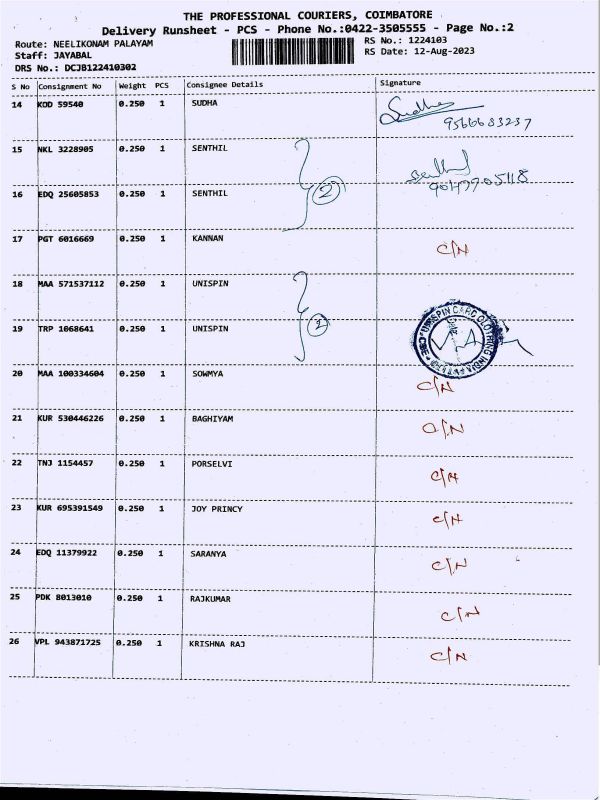 THE PROFESSIONAL COURIERS, COIMBATORE
Delivery Runsheet - PCS - Phone No.:0422-3505555 - Page No.:2
Route: NEELIKONAM PALAYAM RS No.: 1224103
Staff: JAYABAL RS Date: 12-Aug-2023
DRS No.: DCJB122410302
S No Consignment No Weight PCS Consignee Details Signature
14 KOD 59540 0.250 1 SUDHA Sudha
9566633237
15 NKL 3228905 0.250 1 SENTHIL Senthil
2
16 EDQ 25605853 0.250 1 SENTHIL
17 PGT 6016669 0.250 1 KANNAN C/N
18 MAA 571537112 0.250 1 UNISPIN
2
19 TRP 1068641 0.250 1 UNISPIN
20 MAA 100334604 0.250 1 SOWMYA C/N
21 KUR 530446226 0.250 1 BAGHIYAM C/N
22 TNJ 1154457 0.250 1 PORSELVI C/N
23 KUR 695391549 0.250 1 JOY PRINCY C/N
24 EDQ 11379922 0.250 1 SARANYA C/N
25 PDK 8013010 0.250 1 RAJKUMAR C/N
26 VPL 943871725 0.250 1 KRISHNA RAJ C/N